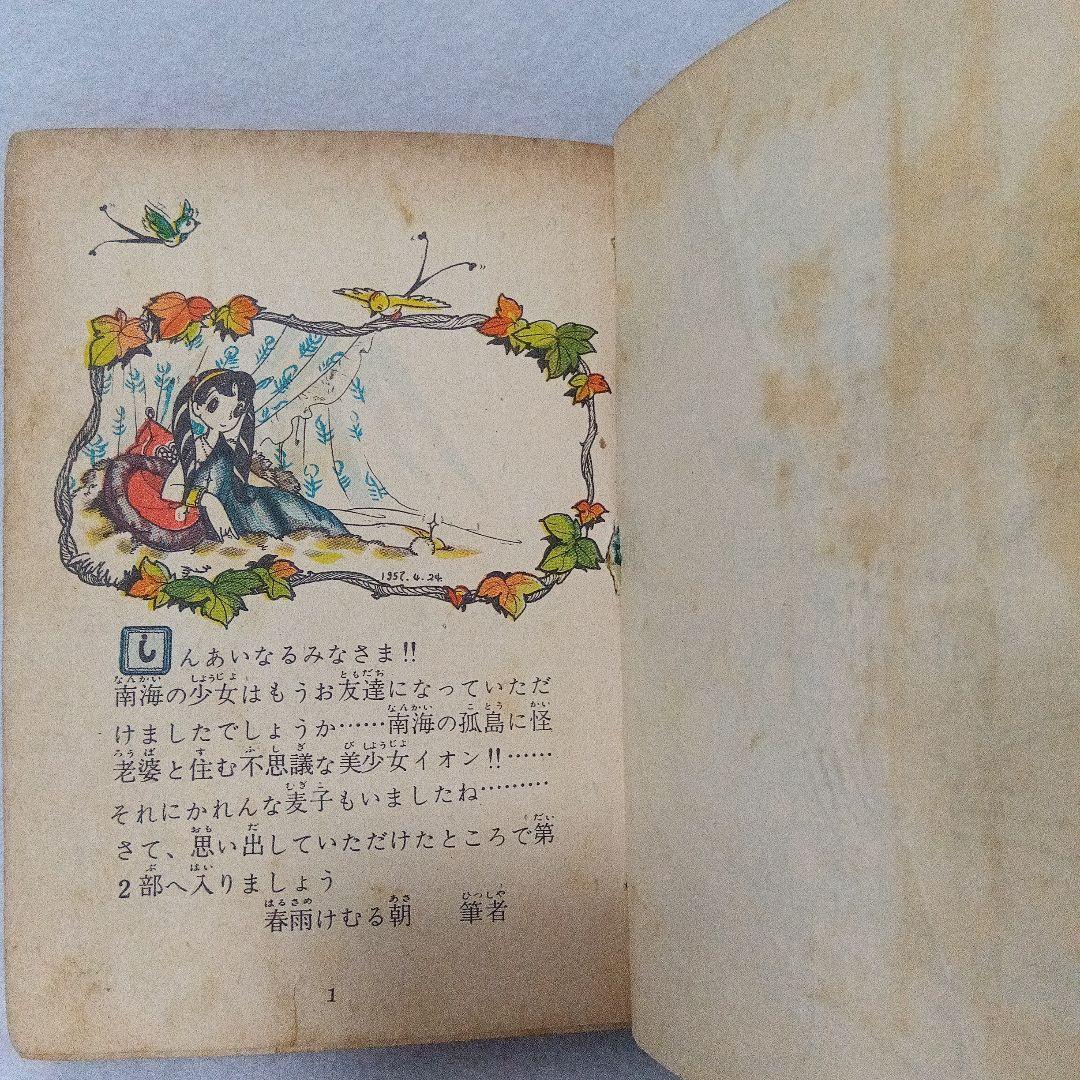 1957.4.24
しんあいなるみなさま!!
南海の少女はもうお友達になっていただ
けましたでしょうか……南海の孤島に怪
老婆と住む不思議な美少女イオン!!……
それにかれんな麦子もいましたね………
さて、思い出していただけたところで第
2部へ入りましょう
春雨けむる朝　筆者
1